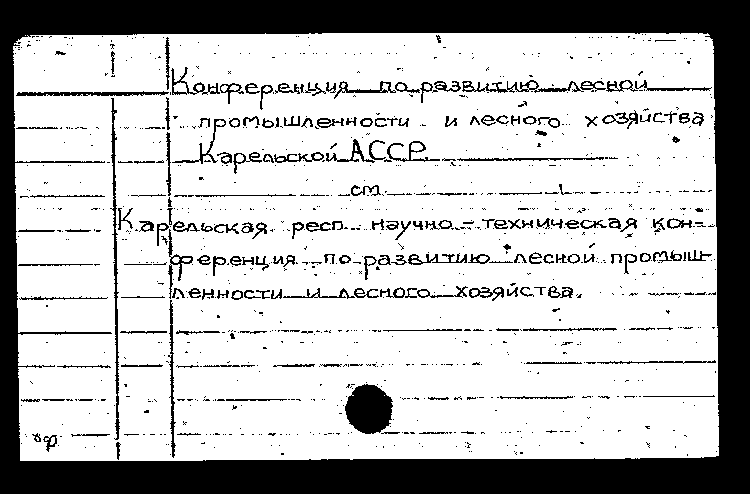 Конференция по развитию лесной
промышленности и лесного хозяйства
Карельской АССР
см.
Карельская респ. научно-техническая кон-
ференция по развитию лесной промыш-
ленности и лесного хозяйства.